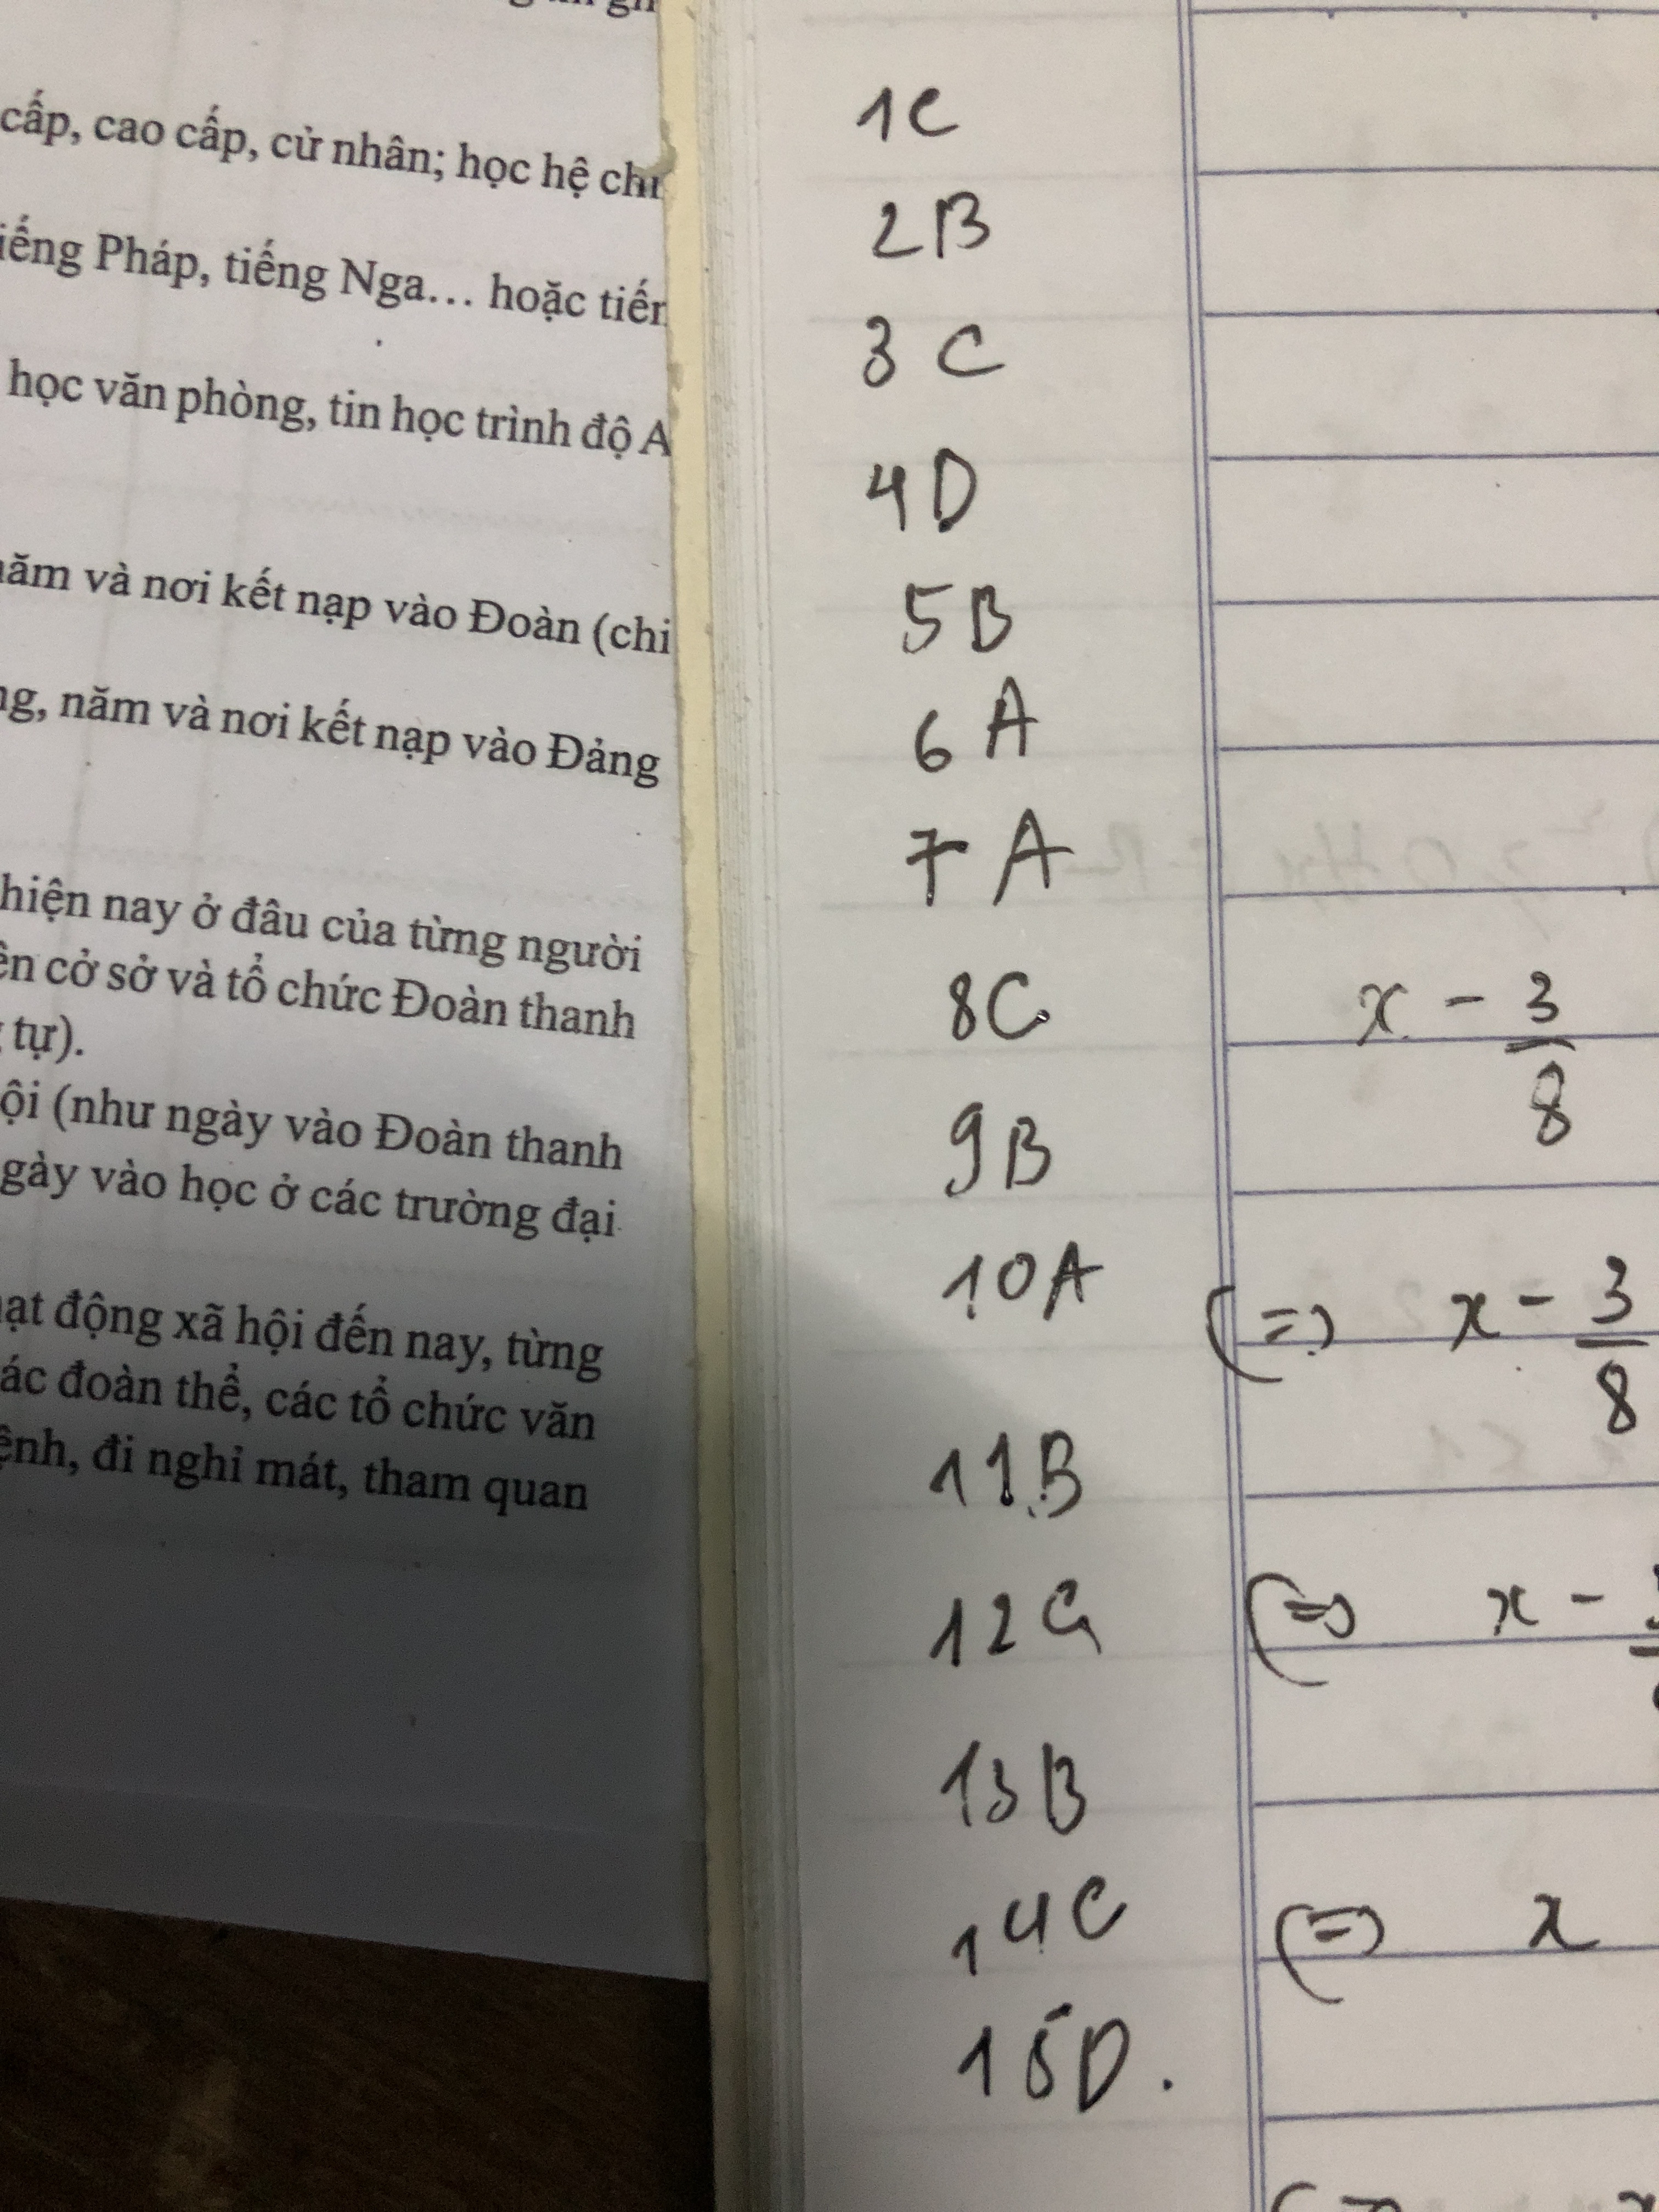 cấp, cao cấp, cử nhân; học hệ
iếng Pháp, tiếng Nga... hoặc
học văn phòng, tin học trình độ A
năm và nơi kết nạp vào Đoàn (chi
ng, năm và nơi kết nạp vào Đảng
hiện nay ở đâu của từng người
ên cở sở và tổ chức Đoàn thanh
tự).
ội (như ngày vào Đoàn thanh
gày vào học ở các trường đại
ạt động xã hội đến nay, từng
ác đoàn thể, các tổ chức văn
ệnh, đi nghỉ mát, tham quan
1C
2B
3C
4D
5B
6A
7A
8C
9B
10A
11B
12C
13B
14C
15D.
x - 3/8
(=) x - 3/8
(=) x -
(=) x